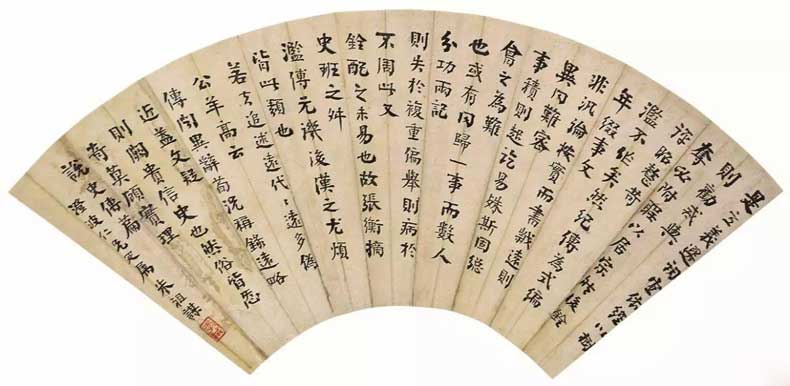 是立義選言宜依經以樹
則勸戒與
奪必附聖以居宗然後銓
評昭整苛
濫不作矣然紀傳為式編
年綴事文
非汎論按實而書歲遠則
異同難密
事積則起訖易疎斯固總
會之為難
也或有同歸一事而數人
分功兩記
則失於複重偏舉則病於
不周此又
銓配之未易也故張衡摘
史班之舛
濫傅玄譏後漢之尤煩
皆此類也
若夫追述遠代〻遠多偽
公羊高云
傳聞異辭荀況稱錄遠略
近蓋文疑
則闕貴信史也然俗皆愛
奇莫顧實理
說史傳篇
澄波仁兄之屬 朱祖謀